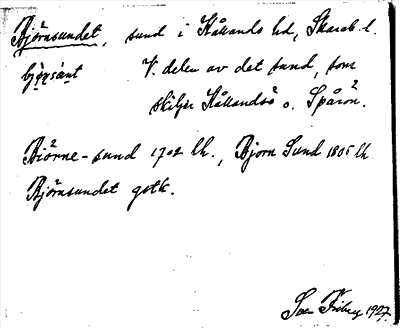 Björnsundet, sund i Kållands hd, Skarab. l.
bjö̀ṇsúnt V. delen av det sund, som
skiljer Kållandsö o. Spårön.
Biörne-sund 1702 lk., Bjorn Sund 1805 lk
Björnsundet gstk.
Sven Friberg 1927.